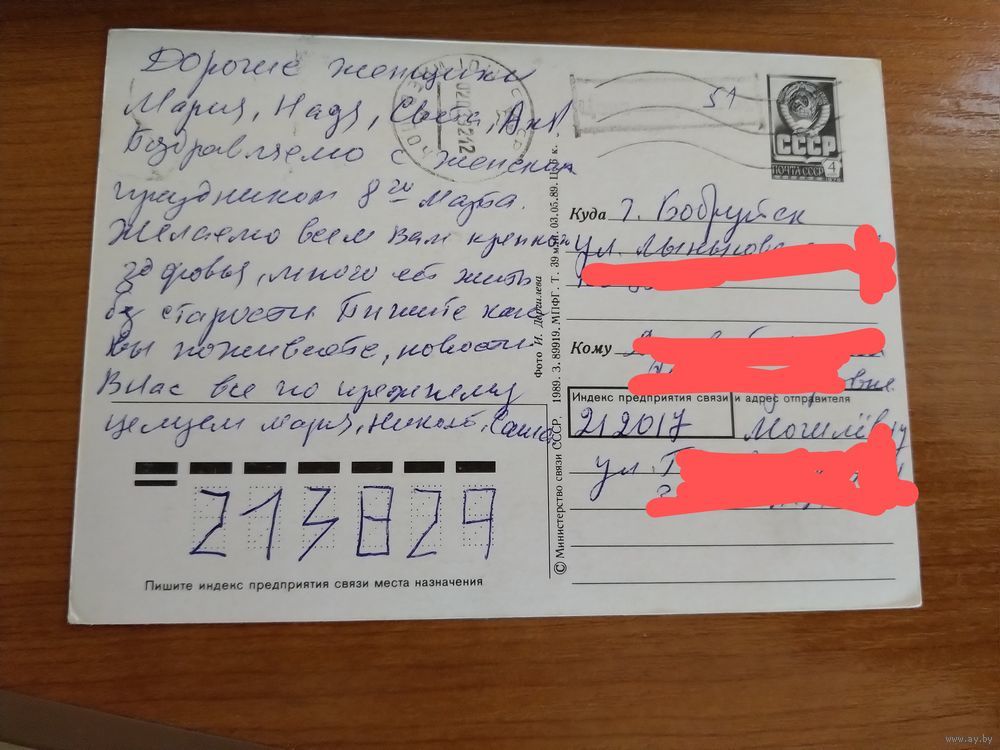 Дорогие женщины
Мария, Надя, Света, Аня!
Поздравляемо с женским
праздником 8го марта.
Желаемо всем Вам крепкого
здоровья, много лет жить
без старости Пишите как
вы поживаете, новости
В нас все по прежнему
целуем Мария, Николай, Саша
213829
Пишите индекс предприятия связи места назначения
© Министерство связи СССР. 1989. З. 89919. МПФГ. Т. 39 млн. 03.05.89. Ц. 6 к.
Фото И. Дергилева
51
СССР
ПОЧТА СССР 4
Куда г. Бобруйск
ул.
Кому
Индекс предприятия связи и адрес отправителя
212017 Могилёв
ул.
www.ay.by